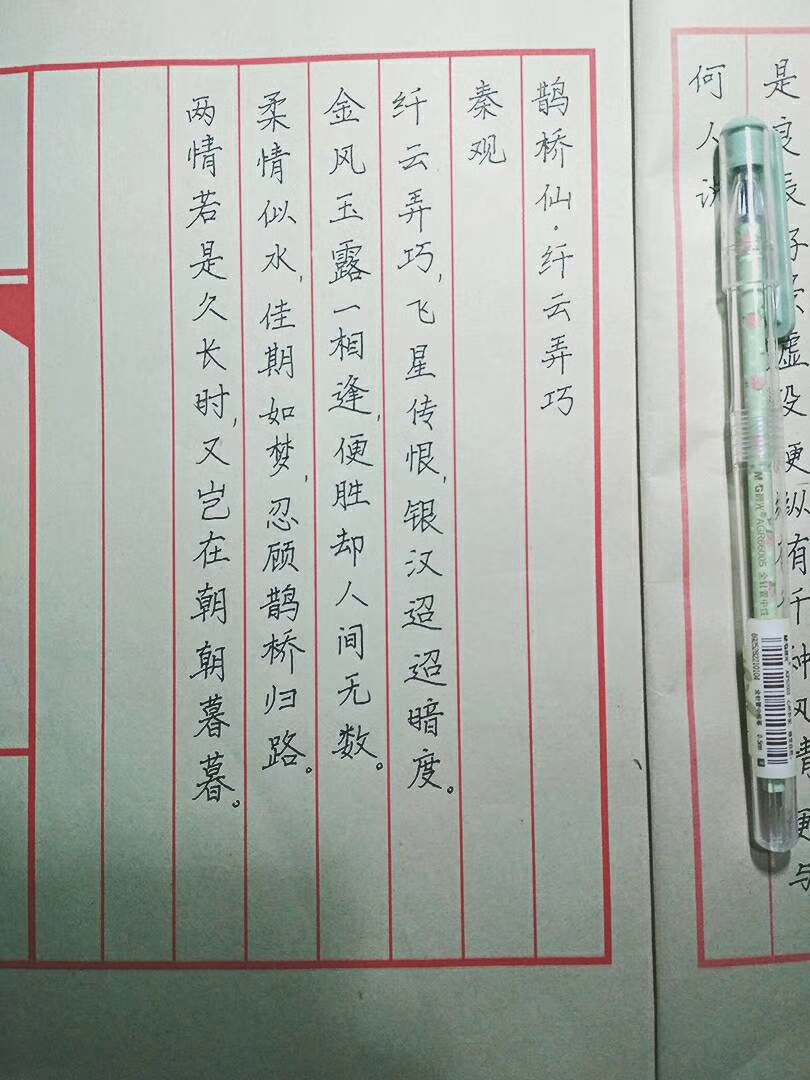 是良辰好景虚设便纵有千种风情更与
何人说
鹊桥仙·纤云弄巧
秦观
纤云弄巧,飞星传恨,银汉迢迢暗度。
金风玉露一相逢,便胜却人间无数。
柔情似水,佳期如梦,忍顾鹊桥归路。
两情若是久长时,又岂在朝朝暮暮。
M&G晨光®